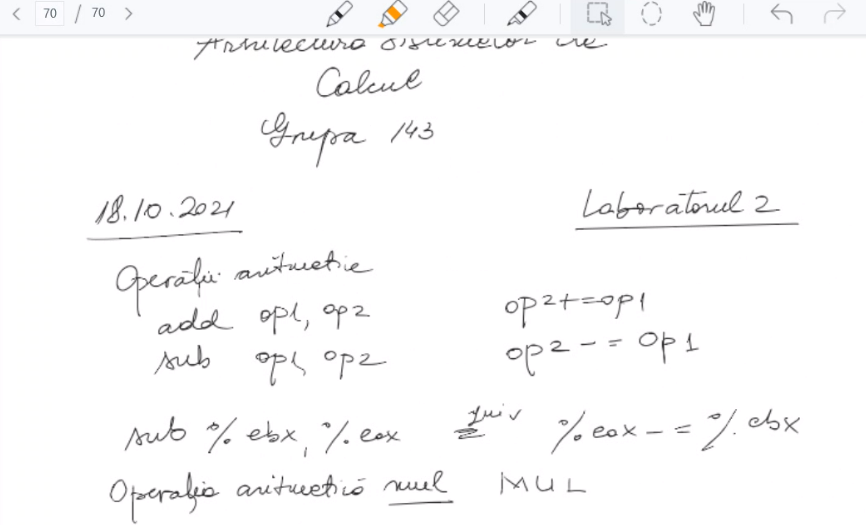 70 / 70
Arhitectura Sistemelor de
Calcul
Grupa 143
18.10.2021 Laboratorul 2
Operații aritmetice
add op1, op2 op2+=op1
sub op1, op2 op2 -= op1
sub %ebx, %eax echiv %eax -= %ebx
Operația aritmetică mul MUL